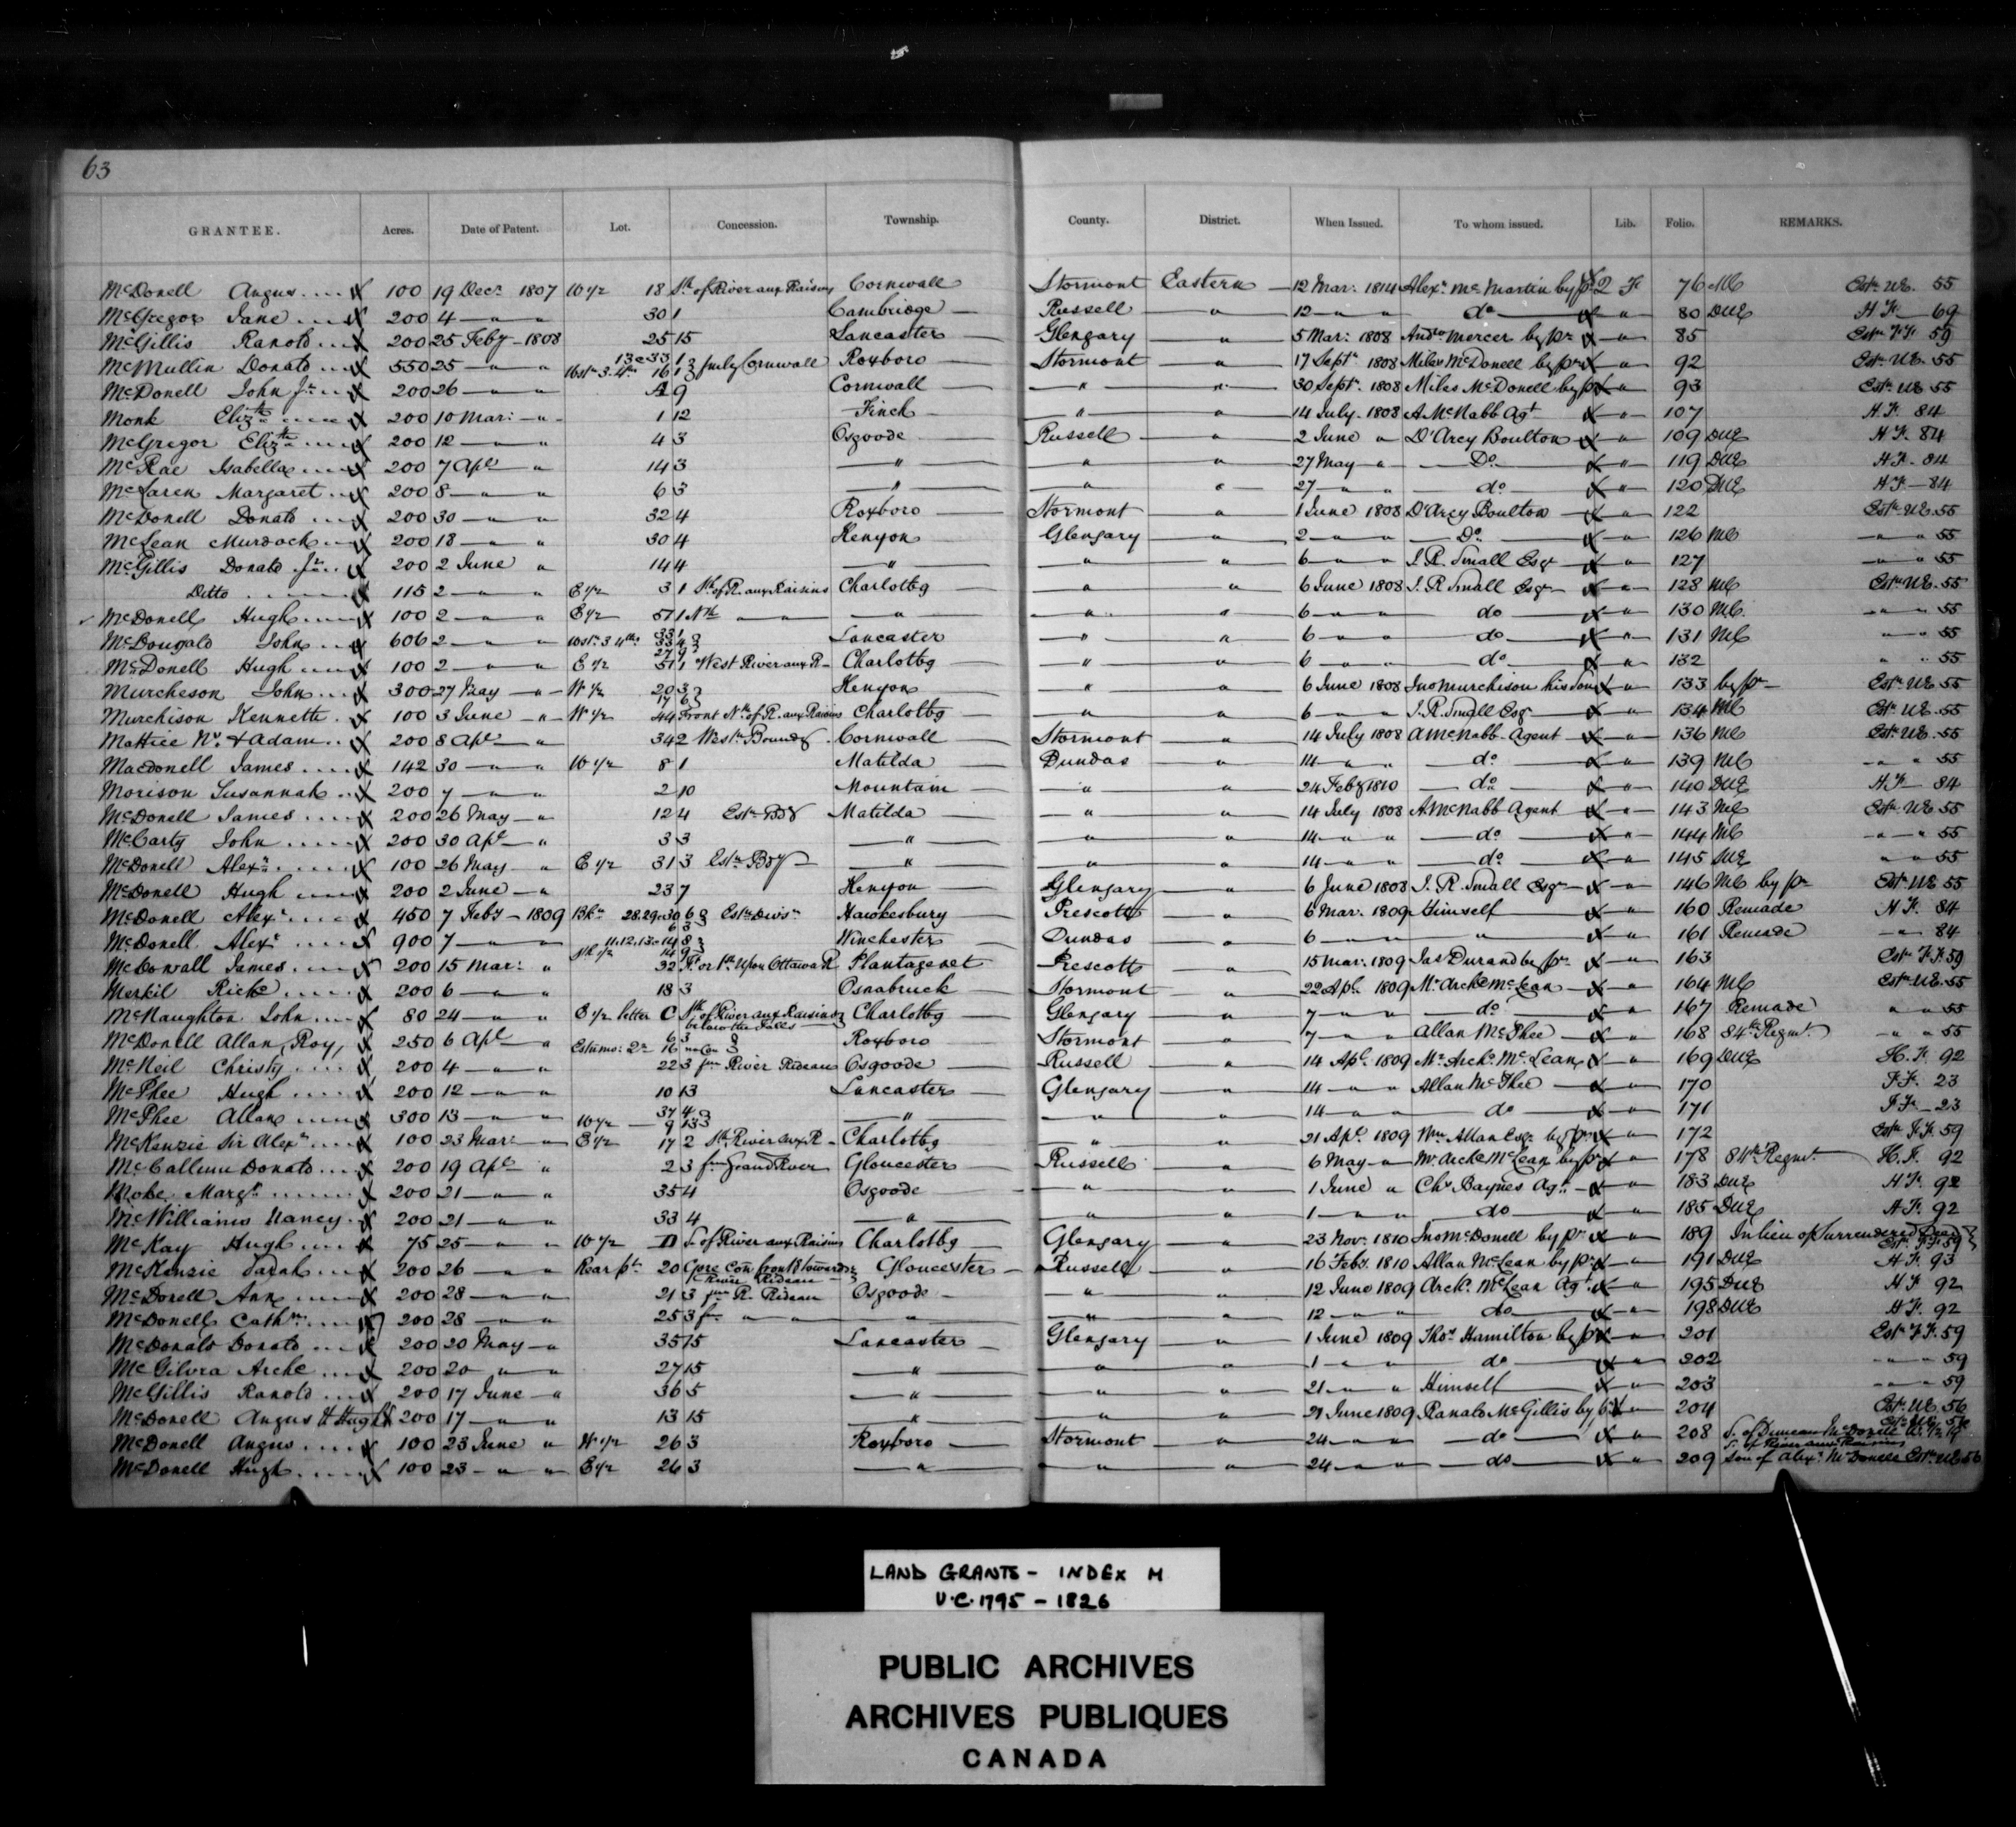 63
GRANTEE. Acres. Date of Patent. Lot. Concession. Township. County. District. When Issued. To whom issued. Lib. Folio. REMARKS.
McDonell Angus 100 19 Decr 1807 W 1/2 18 Sth of River aux Raisins Cornwall Stormont Eastern 12 Mar: 1814 Alexr McMartin by pr 2 F 76 Estn UE. 55
McGregor Jane 200 4 " " 30 1 Cambridge Russell " 12 " " do " 80 DUE H F 69
McGillis Ranold 200 25 Feby 1808 25 15 Lancaster Glengary " 5 Mar: 1808 Andw Mercer by pr " 85 Estn F F. 59
McMullin Donald 550 25 " " 13 & 33 1 Roxboro Stormont " 17 Septr 1808 Miles McDonell by pr " 92 Estn UE. 55
McDonell John Jr 200 26 " " 9 Cornwall " " 30 Septr. 1808 Miles McDonell by pr " 93 Estn UE 55
Monk Elizth 200 10 Mar: " 1 12 Finch " " 14 July 1808 A. McNabb Agt " 107 H F. 84
McGregor Elizth 200 12 " " 4 3 Osgoode Russell " 2 June " D'Arcy Boulton " 109 DUE H F. 84
McRae Isabella 200 7 Apl " 14 3 " " " 27 May " Do " 119 DUE H F. 84
McLaren Margaret 200 8 " " 6 3 " " " 27 " " do " 120 DUE H F 84
McDonell Donald 200 30 " " 32 4 Roxboro Stormont " 1 June 1808 D'Arcy Boulton " 122 Estn UE. 55
McLean Murdoch 200 18 " " 30 4 Kenyon Glengary " 2 " " Do " 126 " " 55
McGillis Donald Jr 200 2 June " 14 4 " " " 6 " " J. R. Small Esqr " 127 " " 55
Ditto 115 2 " " E 1/2 3 1 Sth of R. aux Raisins Charlottbg " " 6 June 1808 J. R Small Esqr " 128 Estn UE. 55
McDonell Hugh 100 2 " " E 1/2 51 1 Nth " " " " " 6 " " do " 130 " " 55
McDougald John 606 2 " " Lancaster " " 6 " " do " 131 " " 55
McDonell Hugh 100 2 " " E 1/2 51 1 West River aux R Charlottbg " " 6 " " do " 132 " " 55
Murcheson John 300 27 May " W 1/2 20 3 17 6 Kenyon " " 6 June 1808 Jno Murchison his Son " 133 by pr Estn UE 55
Murchison Kenneth 100 3 June " W 1/2 44 Front Nth of R. aux Raisins Charlottbg " " 6 " " J. R. Small Esqr " 134 Estn UE. 55
Mattice Nr. & Adam 200 8 Apl " 34 2 Westn Boundy Cornwall Stormont " 14 July 1808 A McNabb Agent " 136 Estn UE. 55
Macdonell James 142 30 " " W 1/2 8 1 Matilda Dundas " 14 " " do " 139 " " 55
Morison Susannah 200 7 " " 2 10 Mountain " " 24 Feby 1810 do " 140 DUE H F 84
McDonell James 200 26 May " 12 4 Estn Bdy Matilda " " 14 July 1808 A McNabb Agent " 143 Estn UE 55
McCarty John 200 30 Apl " 3 3 " " " 14 " " do " 144 " " 55
McDonell Alexr 100 26 May " E 1/2 31 3 Estn Bdy " " " 14 " " do " 145 " " 55
McDonell Hugh 200 2 June " 23 7 Kenyon Glengary " 6 June 1808 J. R. Small Esqr " 146 by pr Estn UE 55
McDonell Alexr 450 7 Feby 1809 Bkn 28.29 & 30 6 Estn Divisn Hawkesbury Prescott " 6 Mar. 1809 Himself " 160 Remade H F. 84
McDonell Alexr 900 7 " " 11.12.13 & 14 8 Winchester Dundas " 6 " " " " 161 Remade " 84
McDowall James 200 15 Mar: " 32 Plantagenet Prescott " 15 Mar: 1809 Jas Durand by pr " 163 Estn F F. 59
Merkil Richd 200 6 " " 18 3 Osnabruck Stormont " 22 Apl 1809 Mr Archd McLean " 164 Estn UE. 55
McNaughton John 80 24 " " E 1/2 letter C Nth of River aux Raisins below the Falls Charlottbg Glengary " 7 " " do " 167 Remade " " 55
McDonell Allan, Roy, 250 6 Apl " Roxboro Stormont " 7 " " Allan McPhee " 168 84th Regmt. " " 55
McNeil Christy 200 4 " " 22 3 fm River Rideau Osgoode Russell " 14 Apl 1809 Mr. Archd McLean " 169 DUE H. F. 92
McPhee Hugh 200 12 " " 10 13 Lancaster Glengary " 14 " " Allan McPhee " 170 F F. 23
McPhee Allan 300 13 " " W 1/2 37 4 9 13 " " " 14 " " do " 171 F F 23
McKenzie Sir Alexr 100 23 Mar: " E 1/2 17 2 Sth River aux R Charlottbg " " 21 Apl 1809 Wm Allan Esqr by pr " 172 Estn F F. 59
McCallum Donald 200 19 Apl " 2 3 fm Grand River Gloucester Russell " 6 May " Mr Archd McLean by pr " 178 84th Regmt. H. F. 92
Margt 200 21 " " 35 4 Osgoode " " 1 June " Chs Baynes Agt " 183 DUE H F. 92
McWilliams Nancy 200 21 " " 33 4 " " " 1 " " do " 185 DUE H F. 92
McKay Hugh 75 25 " " W 1/2 S. of River aux Raisins Charlottbg Glengary " 23 Nov. 1810 Jno McDonell by pr " 189 In lieu of Surrendered Deed Estn F F 59
McKenzie Sarah 200 26 " " Rear pt 20 Gore Con fronts towards River Rideau Gloucester Russell " 16 Feby. 1810 Allan McLean by pr " 191 DUE H F. 93
McDonell Ann 200 28 " " 21 3 fm R. Rideau Osgoode " " 12 June 1809 Archd. McLean Agt " 195 DUE H F 92
McDonell Cathn 200 28 " " 25 3 fm " " " " " 12 " " do " 198 DUE H F. 92
McDonald Donald 200 20 May " 35 15 Lancaster Glengary " 1 June 1809 Thos Hamilton by pr " 201 Estn F F. 59
McGilvra Archd 200 20 " " 27 15 " " " 1 " " do " 202 " " 59
McGillis Ranold 200 17 June " 36 5 " " " 21 " " Himself " 203 " " 59
McDonell Angus H Hugh 200 17 " " 13 15 " " " 21 June 1809 Ranald McGillis by " 204 Estn UE. 56
McDonell Angus 100 23 June " W 1/2 26 3 Roxboro Stormont " 24 " " do " 208 S. of Duncan McDonell
McDonell Hugh 100 23 " " E 1/2 26 3 " " " 24 " " do " 209 Son of Alexr McDonell Estn UE 56
LAND GRANTS - INDEX M
U.C. 1795 - 1826
PUBLIC ARCHIVES
ARCHIVES PUBLIQUES
CANADA